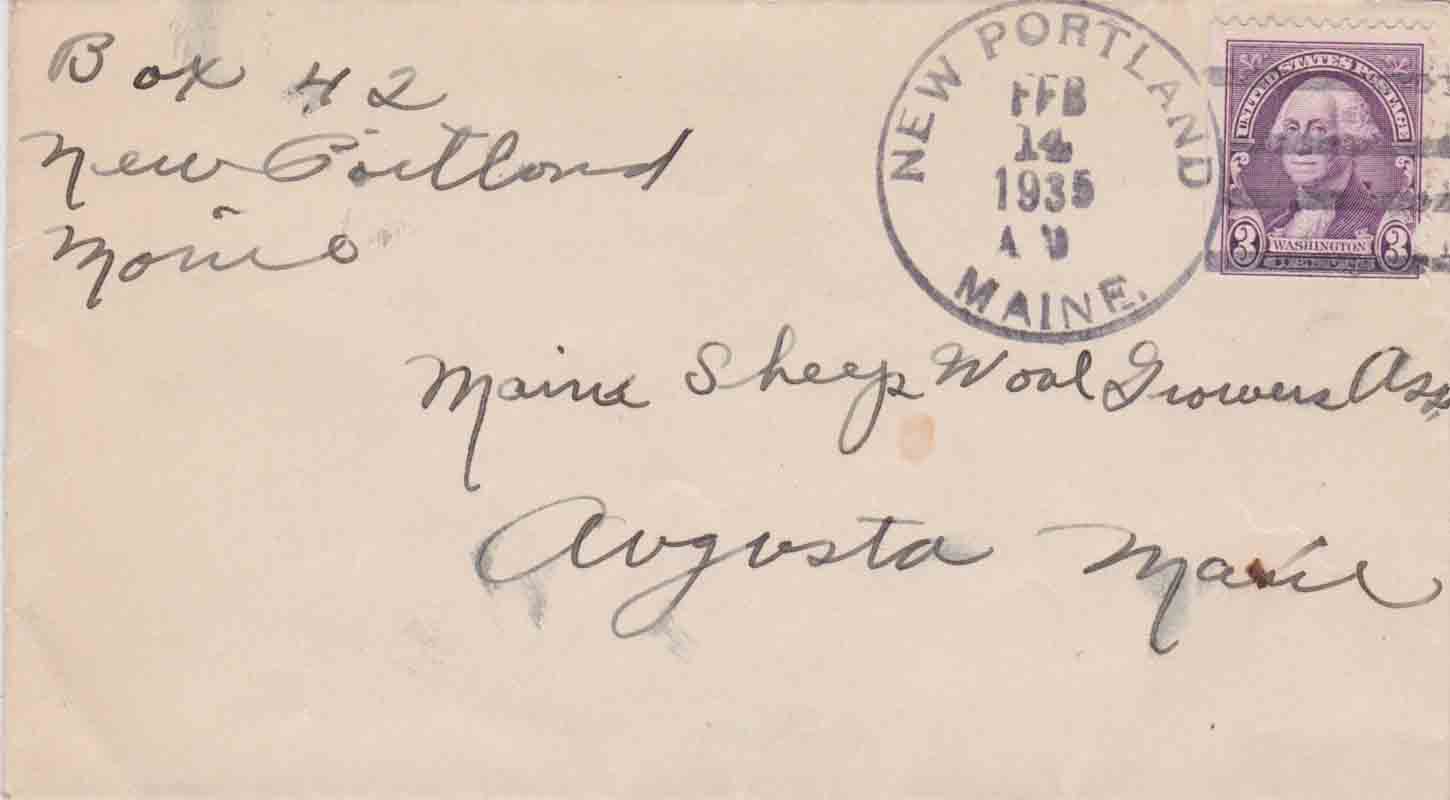 Box 42
New Portland
Maine
NEW PORTLAND
FEB
14
1935
A M
MAINE.
UNITED STATES POSTAGE
3 WASHINGTON 3
Maine Sheep Wool Growers Ass
Augusta Maine